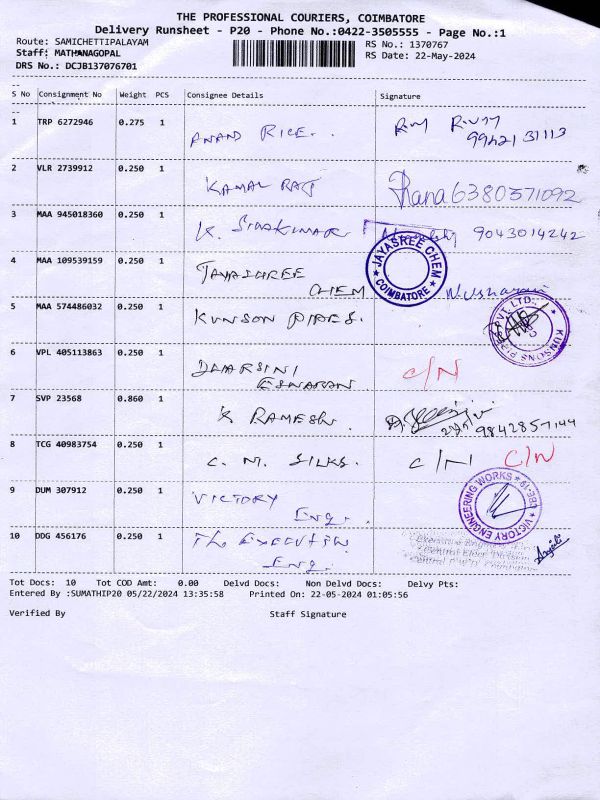 THE PROFESSIONAL COURIERS, COIMBATORE
Delivery Runsheet - P20 - Phone No.:0422-3505555 - Page No.:1
Route: SAMICHETTIPALAYAM
RS No.: 1370767
Staff: MATHANAGOPAL
RS Date: 22-May-2024
DRS No.: DCJB137076701
S No Consignment No Weight PCS Consignee Details Signature
1 TRP 6272946 0.275 1 ANAND RICE.
9942131113
2 VLR 2739912 0.250 1 KAMAL RAJ 6380371092
3 MAA 945018360 0.250 1 K. SIVAKUMAR 9043014242
4 MAA 109539159 0.250 1 JAYASHREE
CHEM
JAYASREE CHEM
COIMBATORE
5 MAA 574486032 0.250 1 KUNSON PIPES.
PVT. LTD.
6 VPL 405113863 0.250 1 DHARSINI
ESWARAN
C/N
7 SVP 23568 0.860 1 K RAMESH. 9842857144
8 TCG 40983754 0.250 1 C. M. SILKS. C/N C/N
9 DUM 307912 0.250 1 VICTORY
Eng.
VICTORY ENGINEERING WORKS
10 DDG 456176 0.250 1 The Executive
Eng.
Tot Docs: 10 Tot COD Amt: 0.00 Delvd Docs: Non Delvd Docs: Delvy Pts:
Entered By :SUMATHIP20 05/22/2024 13:35:58 Printed On: 22-05-2024 01:05:56
Verified By Staff Signature